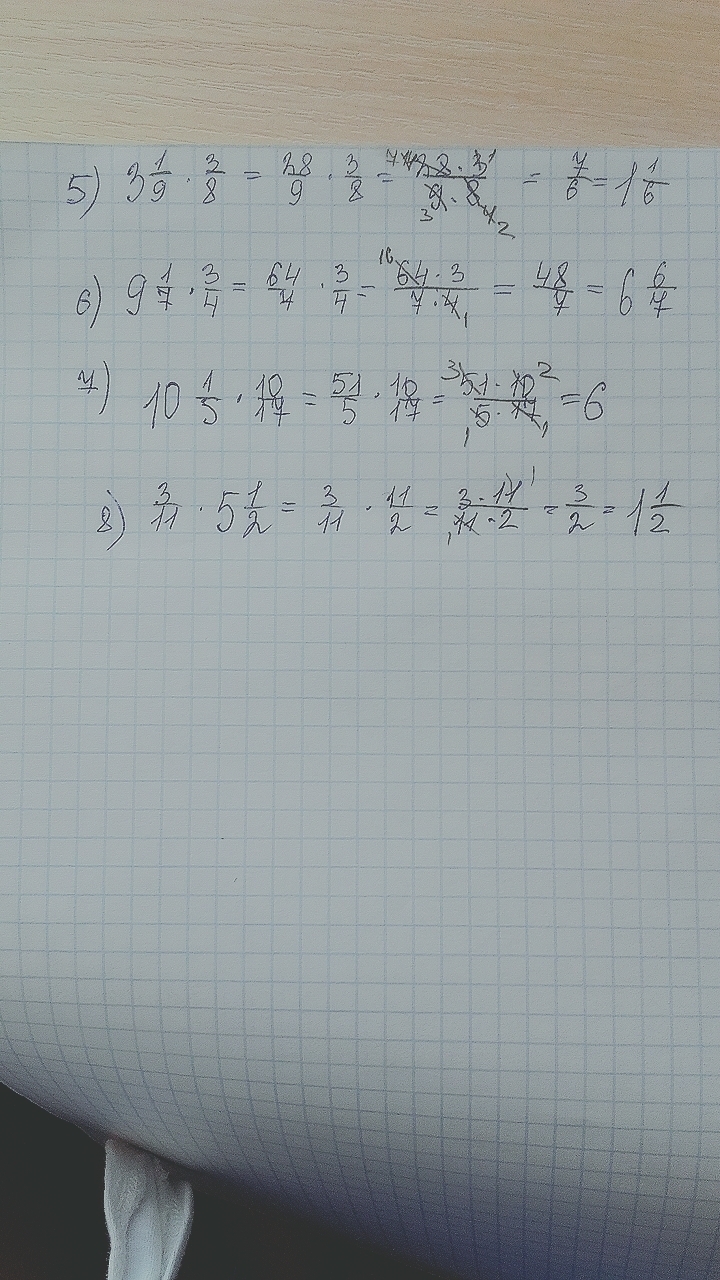 5) 3 1/9 · 3/8 = 28/9 · 3/8 = 7 14 28 · 3 1 / 3 9 · 8 4 2 = 7/6 = 1 1/6
6) 9 1/7 · 3/4 = 64/7 · 3/4 = 16 64 · 3 / 7 · 4 1 = 48/7 = 6 6/7
7) 10 1/5 · 10/17 = 51/5 · 10/17 = 3 51 · 10 2 / 1 5 · 17 1 = 6
8) 3/11 · 5 1/2 = 3/11 · 11/2 = 3 · 11 1 / 1 11 · 2 = 3/2 = 1 1/2